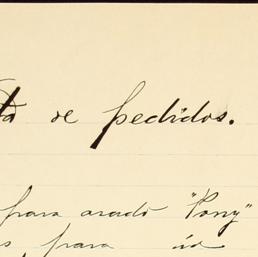 de pedidos.
para arado "Pony"
para id